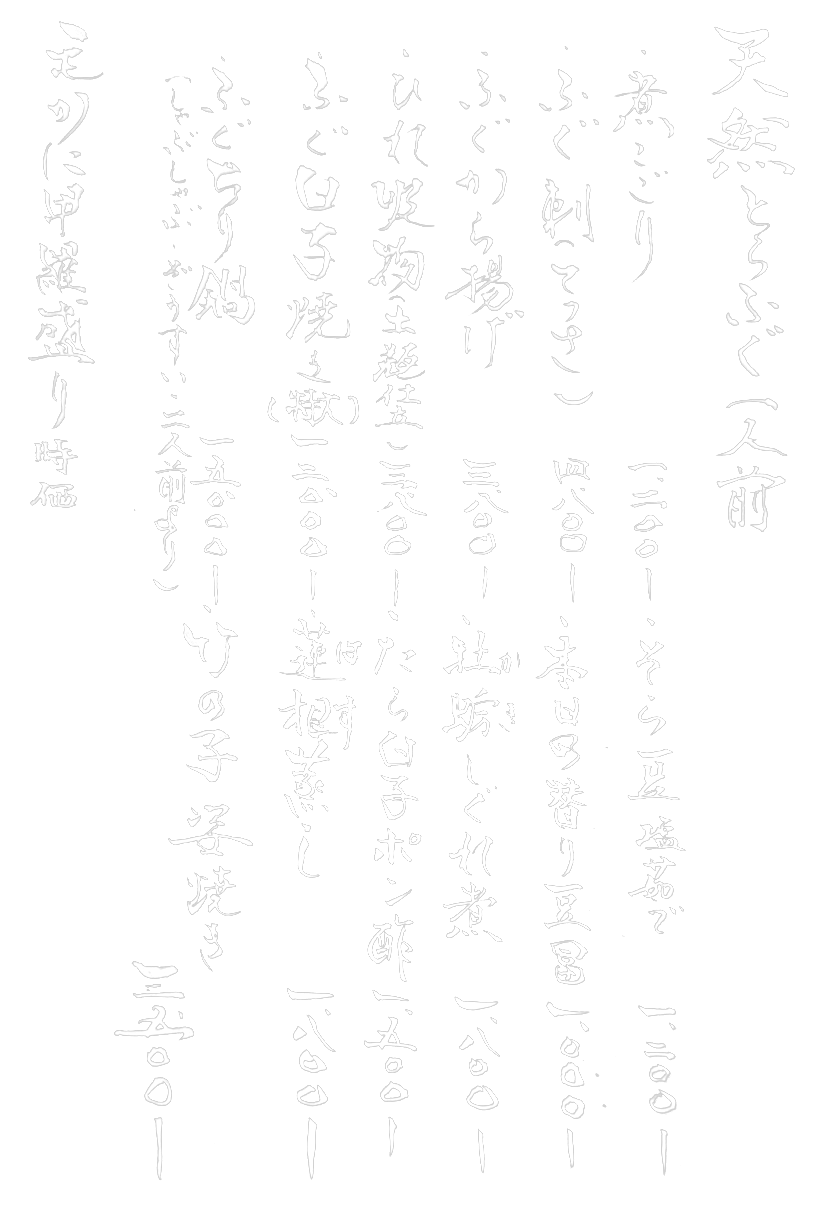 天然とらふぐ一人前
・煮こごり 一、二〇〇ー
・ふぐ刺(てっさ) 四、八〇〇ー
・ふぐから揚げ 三、八〇〇ー
・ひれ吸物(土瓶仕立)三、八〇〇ー
・ふぐ白子焼き(二ヶ)一二、〇〇〇ー
・ふぐちり鍋 一五、〇〇〇ー
(しゃぶしゃぶ・ぞうすい・二人前より)
・そら豆塩茹で 一、二〇〇ー
・本日の替り豆冨 一、〇〇〇ー
・牡蠣しぐれ煮 一、八〇〇ー
かき
・たら白子ポン酢 一、五〇〇ー
・蓮根蒸し 一、八〇〇ー
はす
・竹の子 姿焼き 三、五〇〇ー
毛がに甲羅盛り 時価